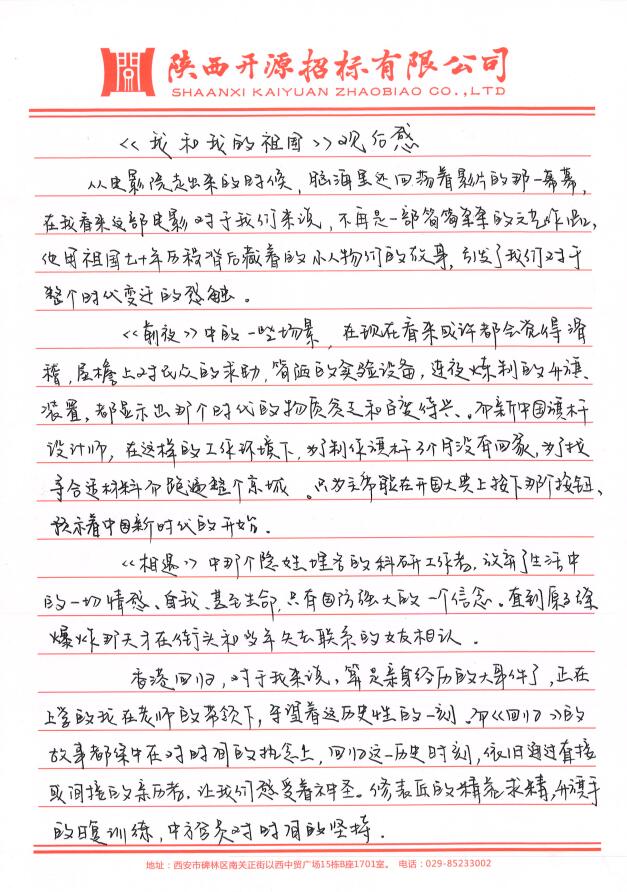 陕西开源招标有限公司
SHAANXI KAIYUAN ZHAOBIAO CO.,LTD
《我和我的祖国》观后感
从电影院走出来的时候，脑海里还回荡着影片的那一幕幕，
在我看来这部电影对于我们来说，不再是一部简简单单的文艺作品，
使用祖国七十年历程背后藏着的小人物们的故事，引发了我们对于
整个时代变迁的感触。
《前夜》中的一些场景，在现在看来或许都会觉得滑
稽，屋檐上对民众的求助，简陋的实验设备，连夜炼制的升旗
装置，都显示出那个时代的物质贫乏和百废待兴。而新中国旗杆
设计师，在这样的工作环境下，为了制作旗杆3个月没有回家，为了找
寻合适材料而跑遍整个京城。只为主席能在开国大典上按下那个按钮、
预示着中国新时代的开始。
《相遇》中那个隐姓埋名的科研工作者，放弃了生活中
的一切情感、自我、甚至生命，只有国防强大的一个信念。直到原子弹
爆炸那天才在街头和当年失去联系的女友相认。
香港回归，对于我来说，算是亲身经历的大事件了，正在
上学的我在老师的带领下，守望着这历史性的一刻。而《回归》的
故事都集中在对时间的执念上，回归这一历史时刻，依旧通过直接
或间接的亲历者，让我们感受着神圣。修表匠的精益求精，升旗手
的日复训练，中方官员对时间的坚持。
地址：西安市碑林区南关正街以西中贸广场15栋B座1701室。 电话：029-85233002